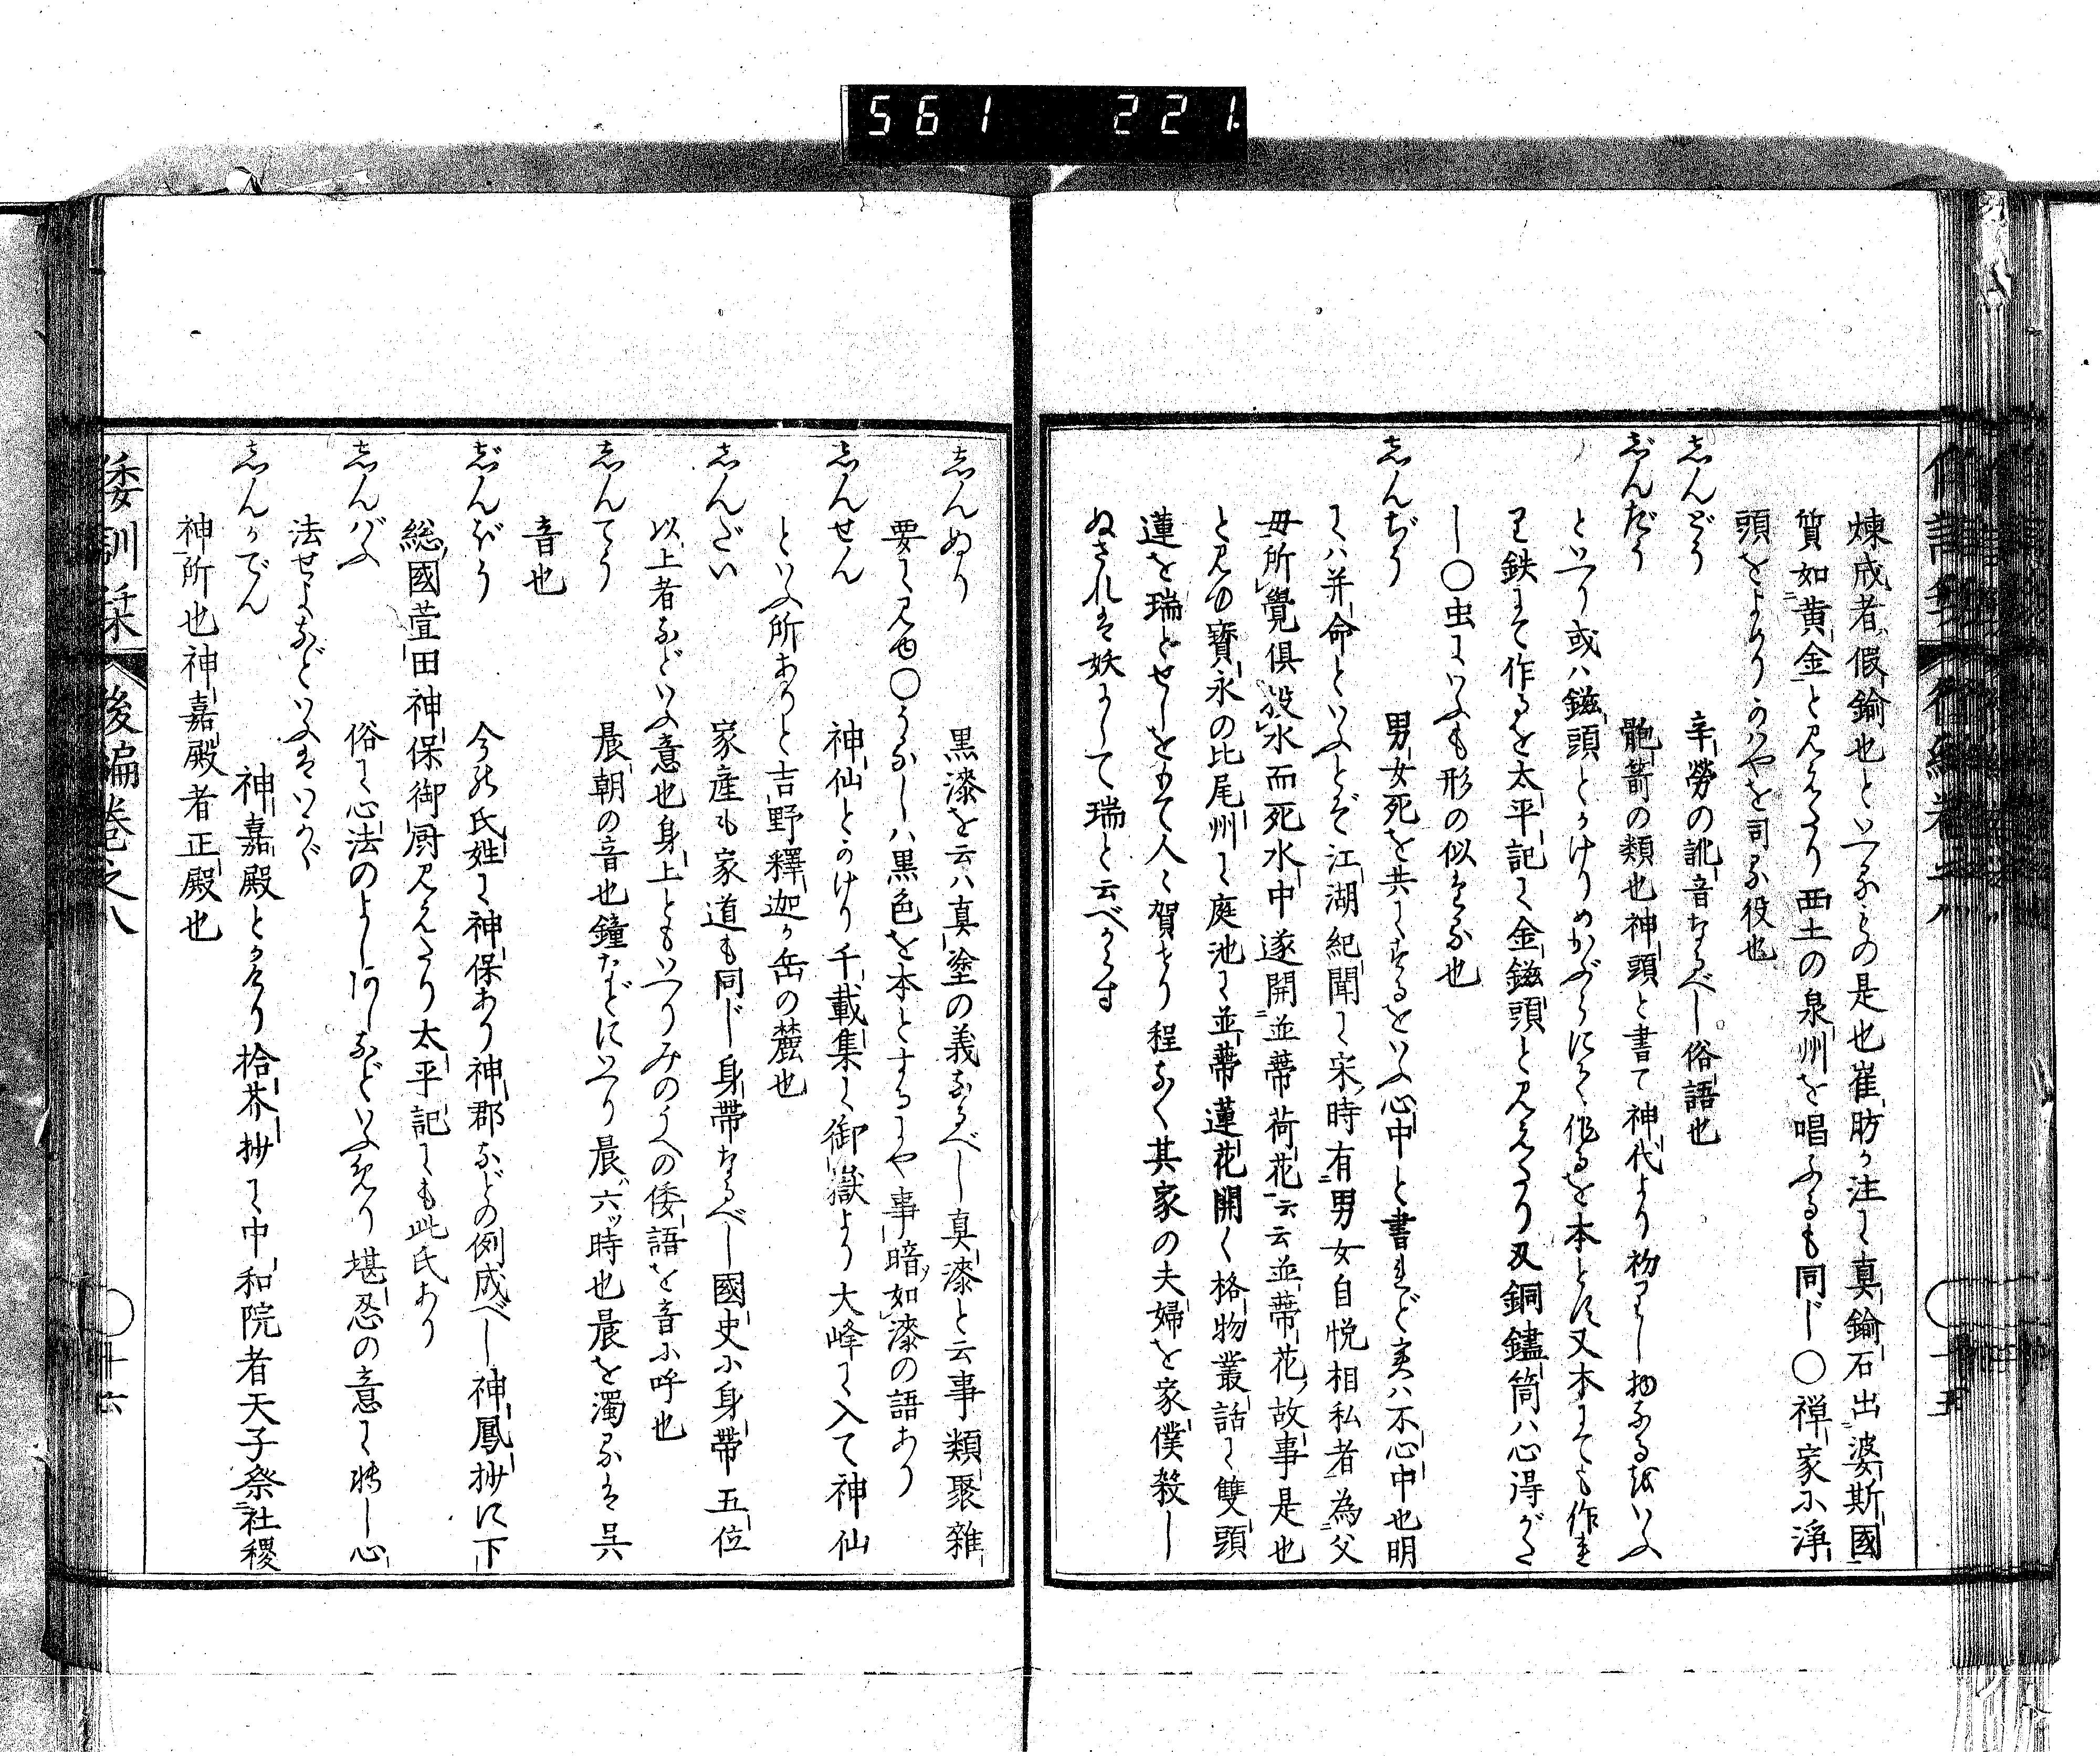 561 221.
煉成者假鍮也といへるもの是也崔昉か注に真鍮石出婆斯國
質如黄金と見えたり西土の泉州を唱ふるも同じ○禅家小淨
頭をよめりかはやを司る役也
志んどう 辛勞の訛音なるべし俗語也
志んだう 骲箭の類也神頭と書て神代より初りし物なる故いふ
といへり或ハ鎡頭とかけりめかぶらにて作るを本とす又木にても作れ
り鉄にて作るを太平記に金鎡頭と見えたり又銅鑪筒ハ心得がた
し○虫にいふも形の似たる也
志んぢう 男女死を共にするをいふ心中と書れど実ハ不心中也明
にハ并命といふとぞ江湖紀聞に宋時有男女自悦相私者為父
母所覺倶投水而死水中遂開並蔕荷花云云並蔕花故事是也
と見ゆ寶永の比尾州に庭池に並蔕蓮花開く格物叢話に雙頭
蓮を瑞とせしをもて人々賀せり程なく其家の夫婦を家僕殺し
ぬされは妖にして瑞と云べからす
志んぬり 黒漆を云ハ真塗の義なるべし真漆と云事類聚雜
要に見ゆ○うるしハ黒色を本とするにや事暗如漆の語あり
志んせん 神仙とかけり千載集に御嶽より大峰に入て神仙
といふ所ありと吉野釋迦か岳の麓也
志んだい 家産も家道も同じ身帶なるべし國史小身帶五位
以上者などいふ意也身上ともいへりみのうへの倭語を音小呼也
志んてう 晨朝の音也鐘などにいへり晨ハ六ッ時也晨を濁るは呉
音也
志んぼう 今於氏姓に神保あり神郡などの例成べし神鳳抄に下
総國萱田神保御厨見えたり太平記にも此氏あり
志んバふ 俗に心法のよしあしなどいふめり堪忍の意に轉し心
法せよなどいふはいかゞ
志んかでん 神嘉殿とかけり拾芥抄に中和院者天子祭社稷
神所也神嘉殿者正殿也
倭訓栞 後編巻之八 ○ 廿六